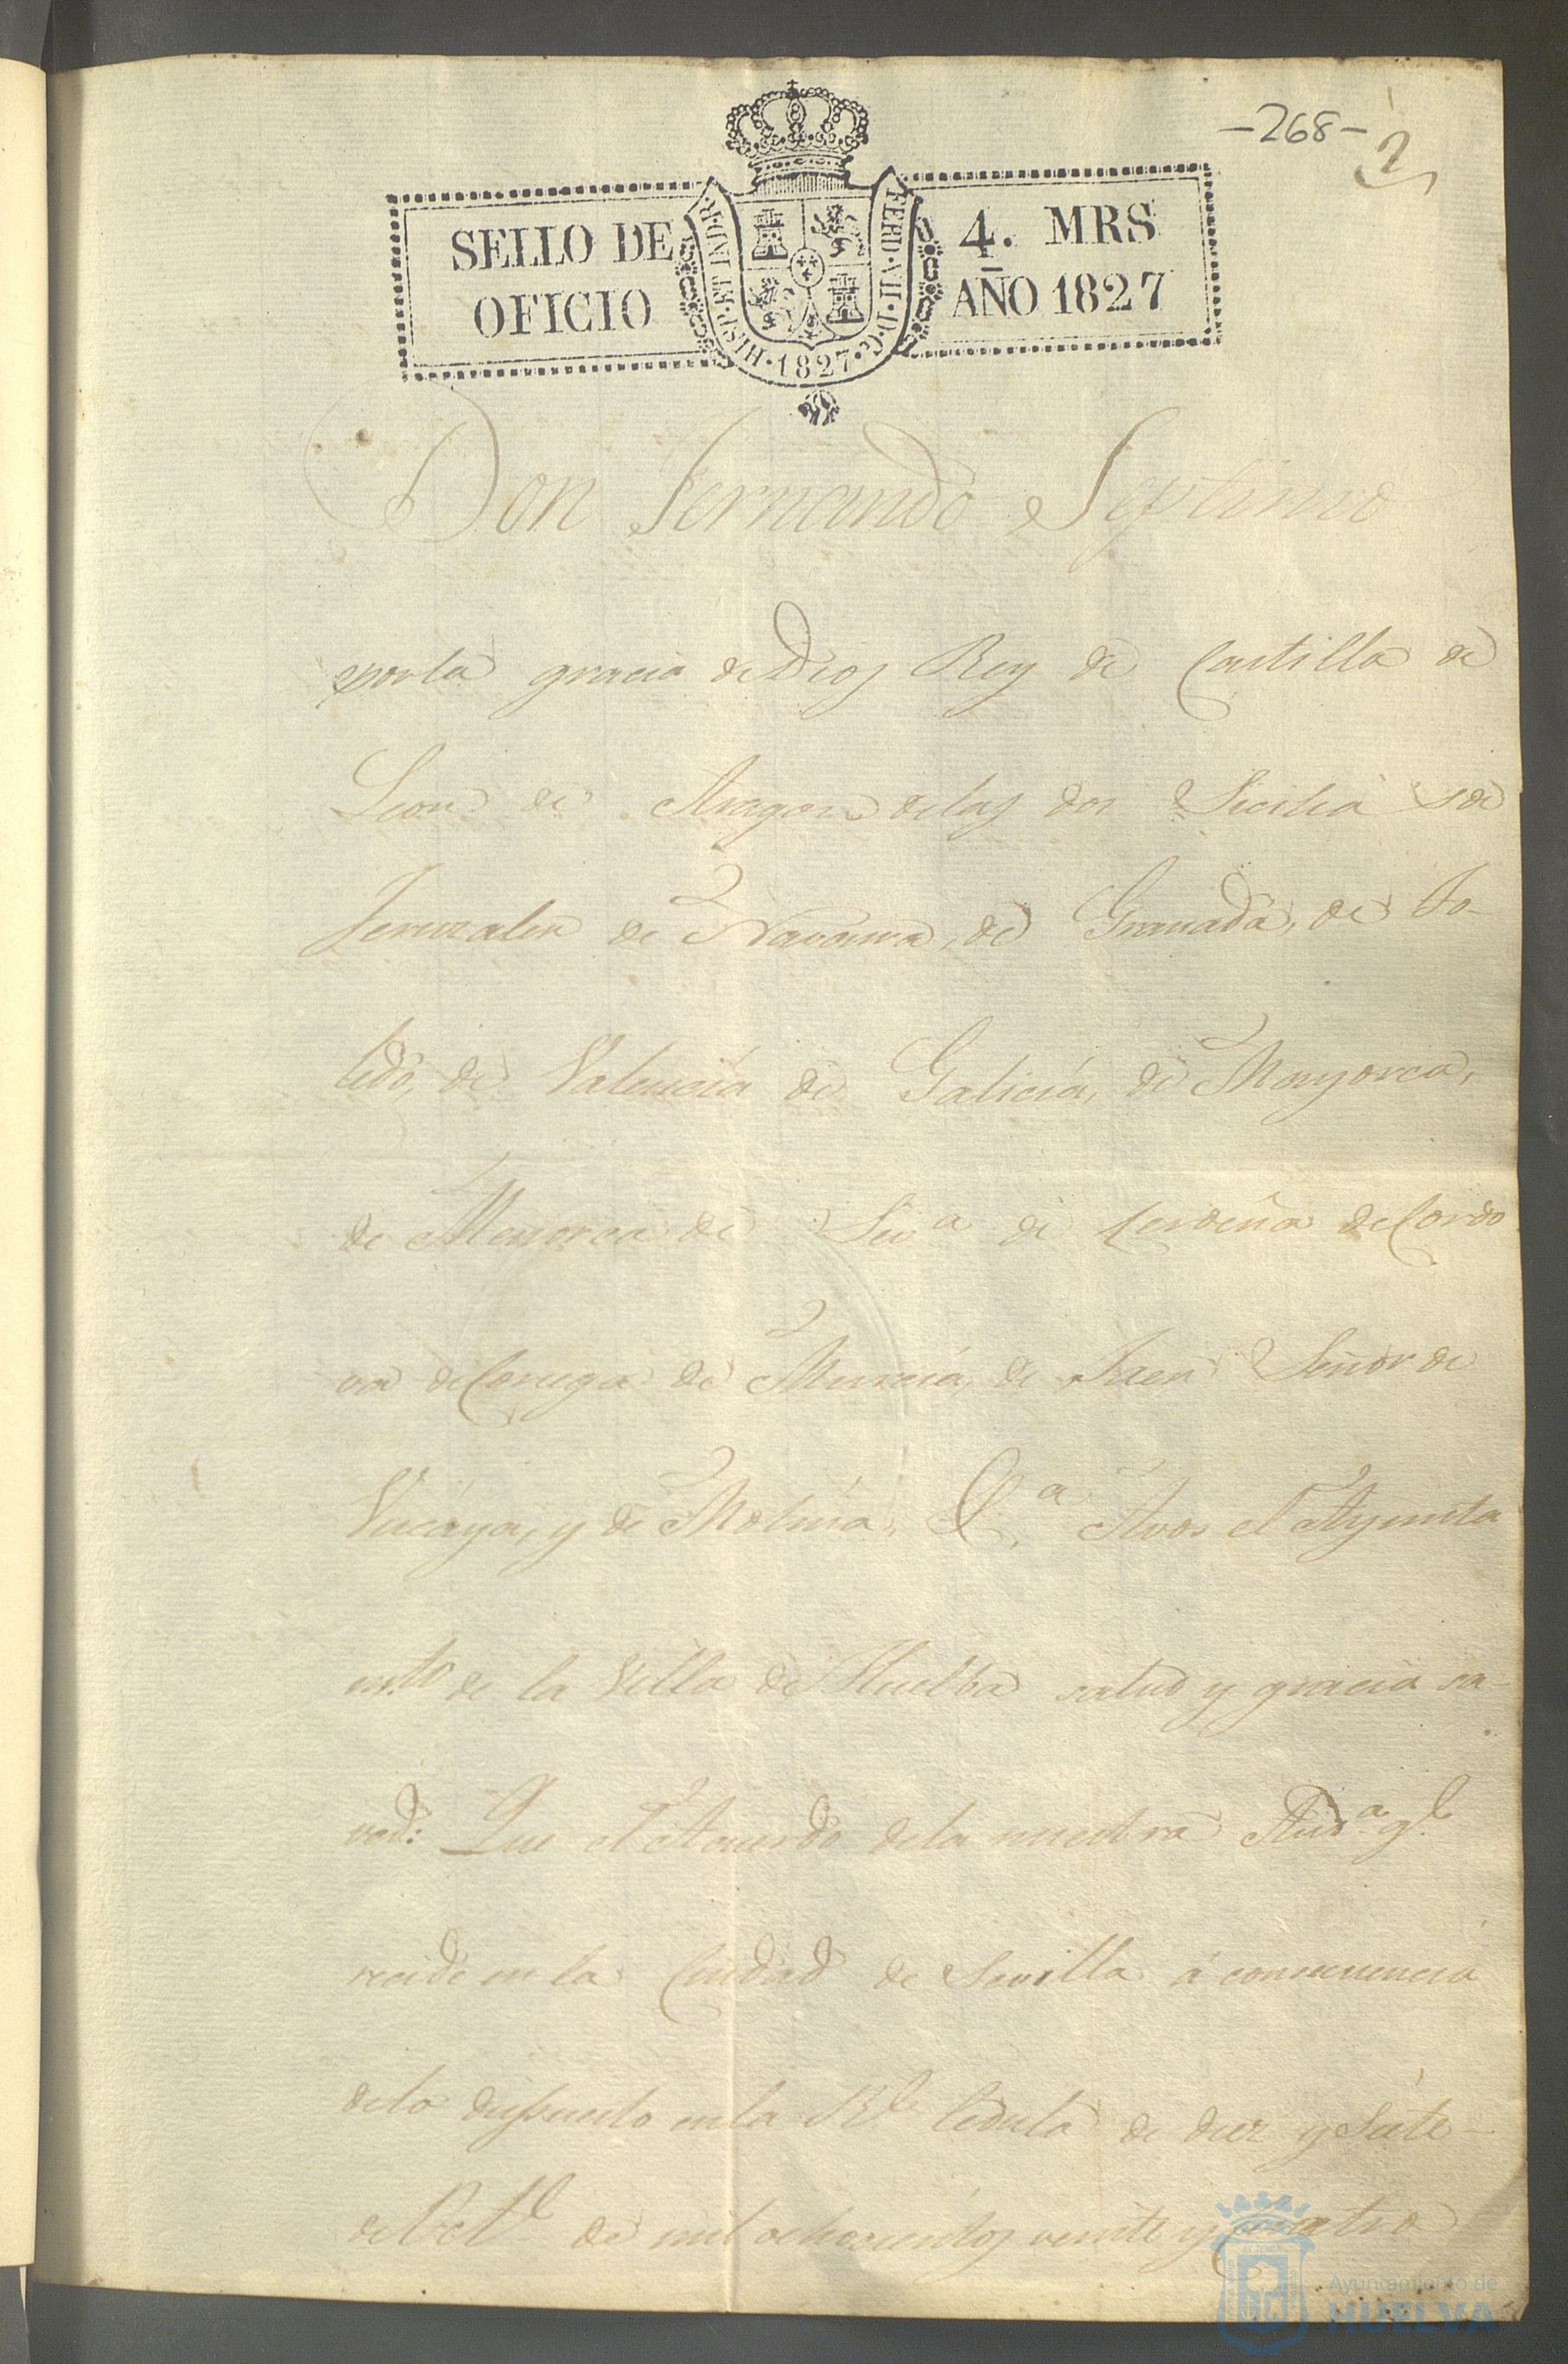 -268-
2
SELLO DE
OFICIO
HISP·ET IND·R·
·1827·
FERD·VII·D·G·
4. MRS
AÑO 1827
Don Fernando Septimo
porla gracia de Dios Rey de Castilla de
Leon de Aragon delas dos Sicilias de
Jeruzalen de Navarra, de Granada, de To-
ledo, de Valencia de Galicia, de Mayorca,
de Menorca de Sevª de Cerdeña de Cordo
va de Corsega de Murcia, de Jaen Señor de
Viscaya, y de Molina, &ª Avos el Ayunta
mto de la Villa de Huelba salud y gracia sa-
ved: Que el Acuerdo dela nuestra Audª gl
reside en la Ciudad de Sevilla á consecuencia
delo dispuesto en la Rl Cedula de diez y Siete
de Octe de mil ochocientos veinte y cuatro
Ayuntamiento de
HUELVA